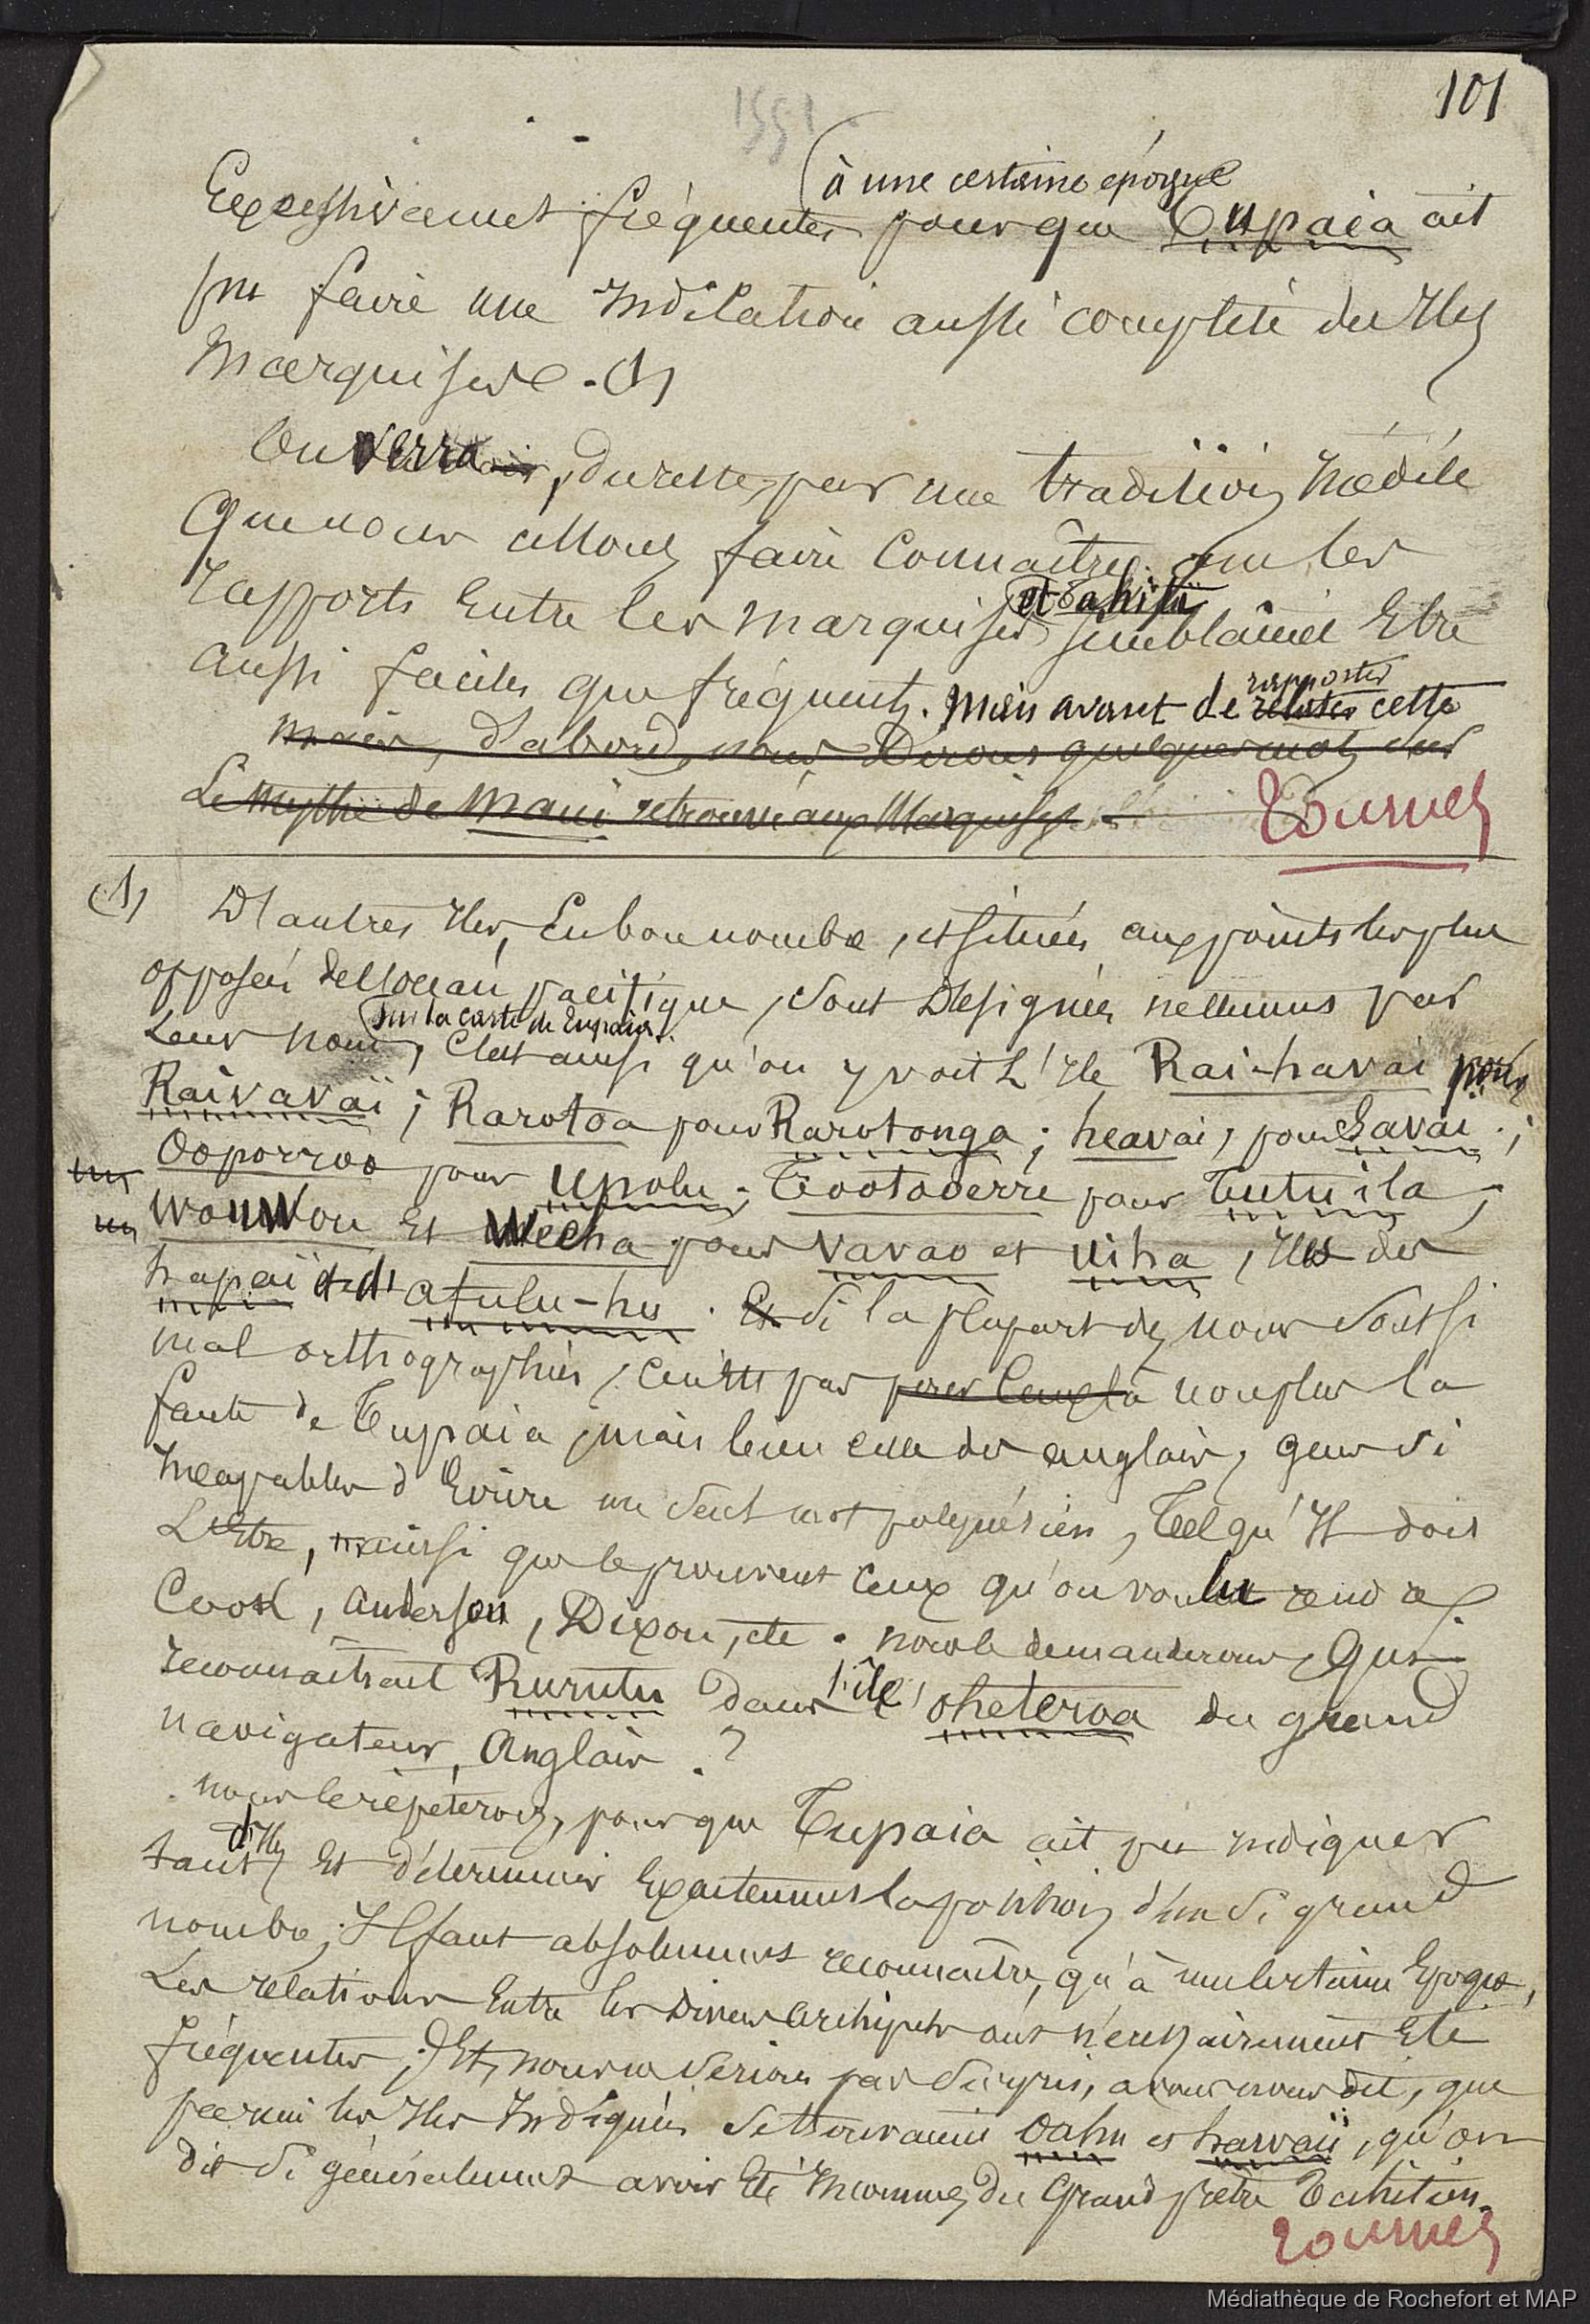 101
1551
à une certaine époque
Excessivement fréquentes pour que Tupaia ait
pu faire une Indication aussi complète des Iles
Marquises. (1)
On verra, du reste, par une tradition Inédite
que nous allons faire connaître, que les
et Tahiti
rapports Entre les Marquises semblaient Etre
rapporter
aussi faciles que fréquents. Mais avant de relater cette
mais, d'abord, nous Dirons quelques mots sur
Le mythe de Maui retrouvé aux Marquises
tournez
(1) D'autres Iles, En bon nombre, et situées aux points les plus
opposés de l'océan pacifique, sont Désignées nettement par
sur la carte de Tupaia
Leur nom, C'est ainsi qu'on y voit L'Ile Rai-havai pour
Raivavaï ; Rarotoa pour Rarotonga ; heavai, pour Savai ;
Ooporroo pour Upolu ; Tootooerre pour Tutuila ;
Wouwou et Weeha pour Vavao et Uiha, Iles des
hapaï et d'Afulu-hu. Et Si la plupart des noms sont si
mal orthographiés, ce n'est pas pour ceux là non plus la
faute de Tupaia, mais bien celle des anglais, gens si
Incapables d'Ecrire un seul mot polynésien, Tel qu'Il doit
L'Etre, ainsi que le prouvent ceux qu'on voulu rendre
Cook, Anderson, Dixon, etc. nous le demanderons, Qui
reconnaîtrait Rurutu dans l'île oheteroa du grand
navigateur Anglais ?
nous le répéterons, pour que Tupaia ait pu indiquer
d'Iles
tant Et déterminer Exactement la position d'un si grand
nombre, Il faut absolument reconnaître, qu'à une certaine Epoque,
Les relations Entre les Divers archipels ont nécessairement Eté
fréquentes ; Et, nous ne serions pas surpris, avons nous dit, que
parmi les Iles Indiquées se trouvaient Oahu et hawaii, qu'on
dit si généralement avoir Eté Inconnues du Grand prêtre Tahitien.
tournez
Médiathèque de Rochefort et MAP